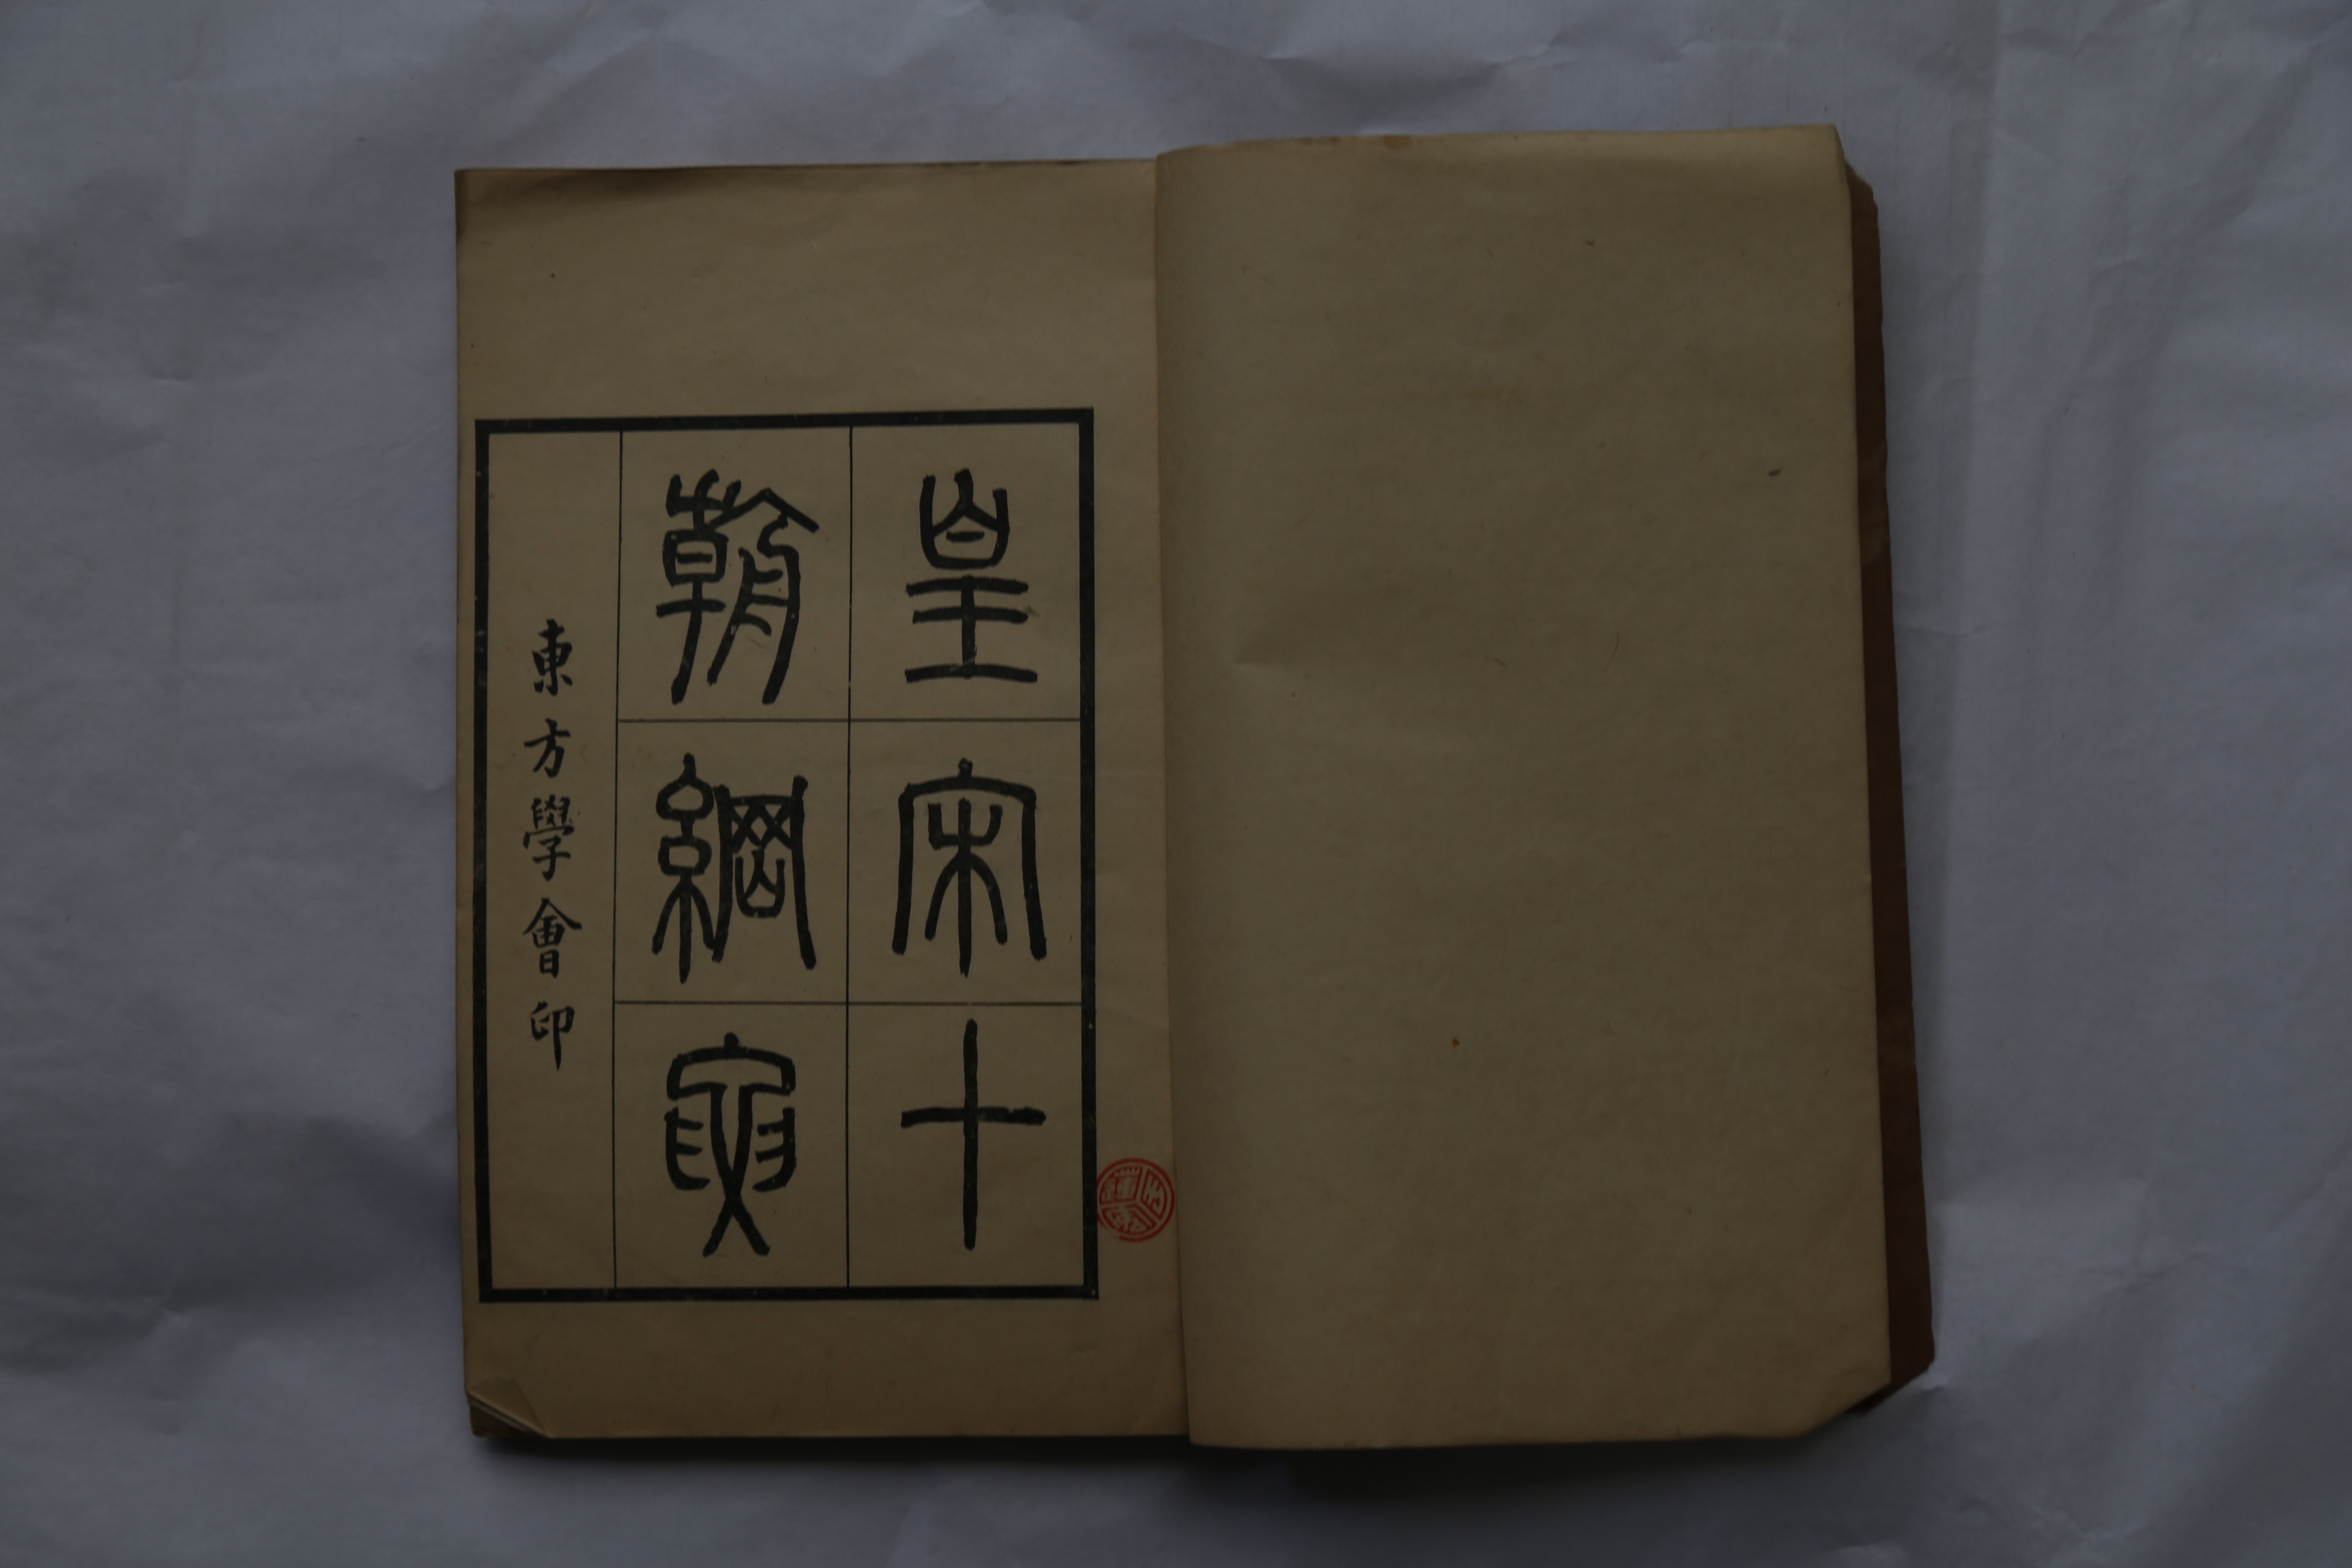 皇宋十
朝綱要
東方學會印